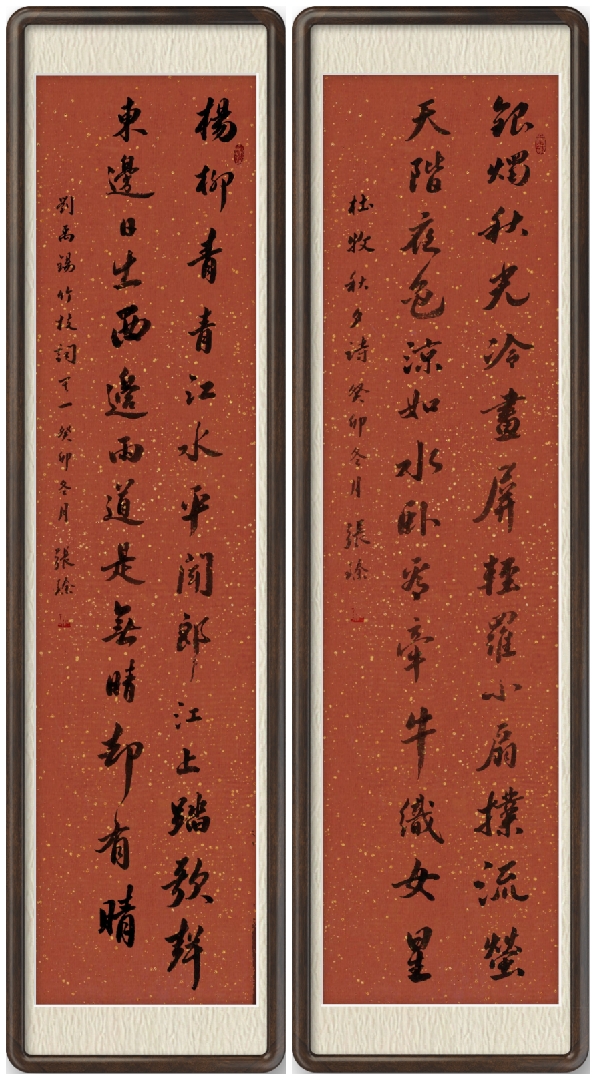 銀燭秋光冷畫屏輕羅小扇撲流螢
天階夜色涼如水卧看牽牛織女星
杜牧秋夕詩 癸卯冬月 張
楊柳青青江水平聞郎江上踏歌聲
東邊日出西邊雨道是無晴却有晴
劉禹錫竹枝詞其一 癸卯冬月 張